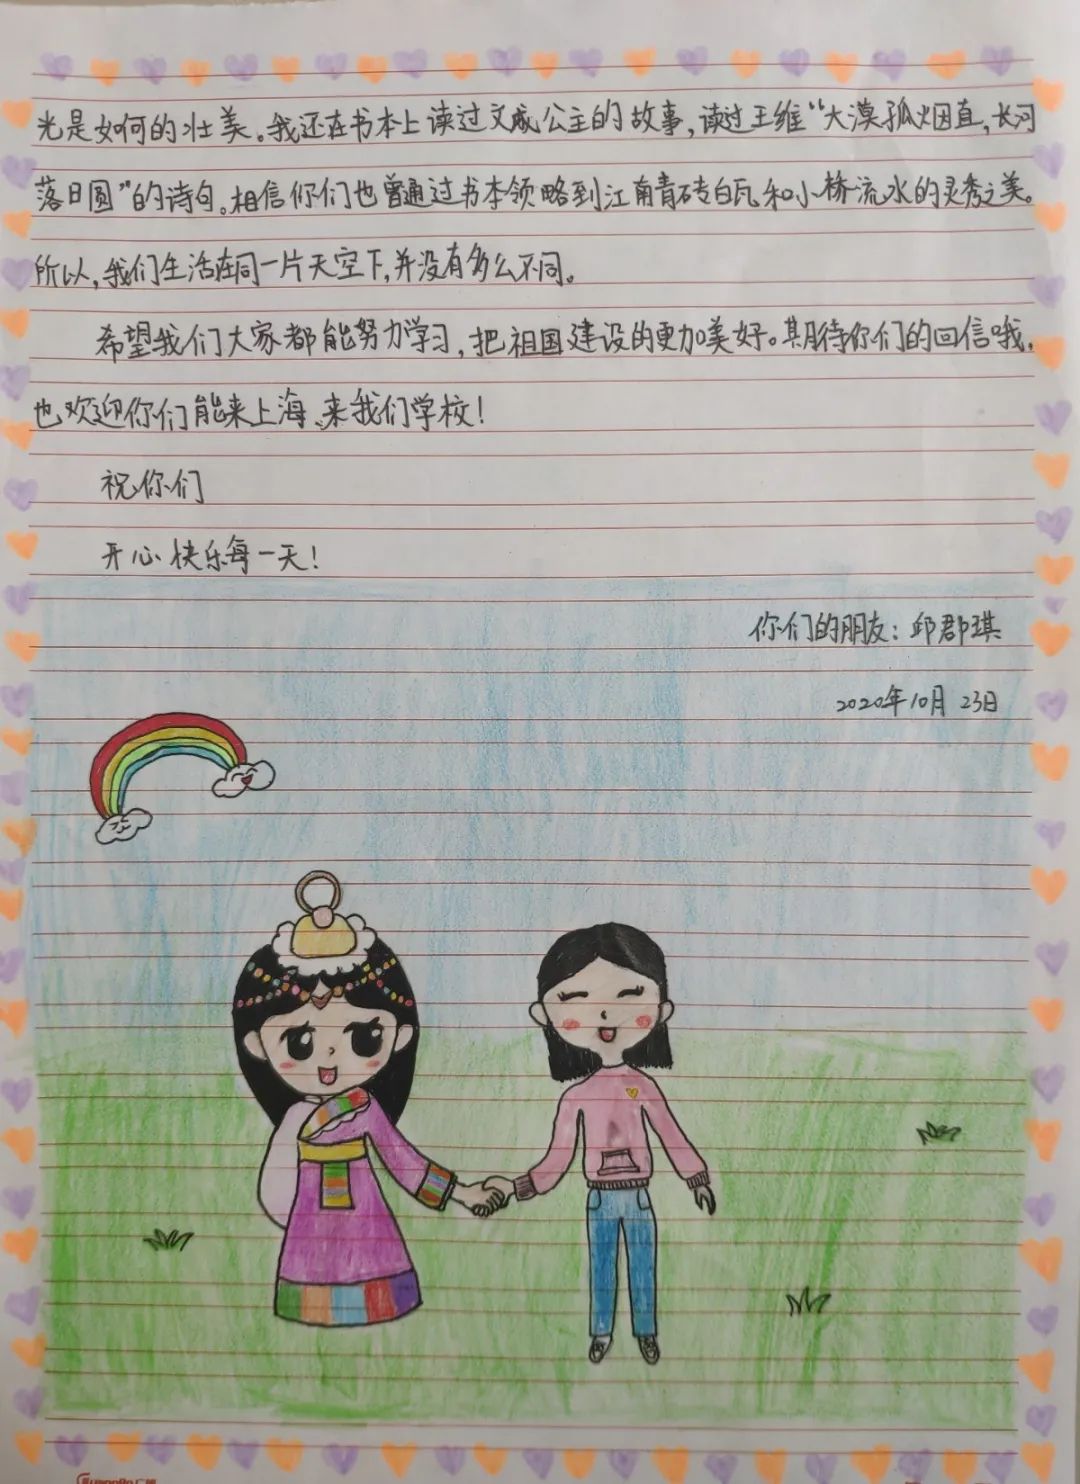 光是如何的壮美。我还在书本上读过文成公主的故事,读过王维“大漠孤烟直,长河
落日圆”的诗句。相信你们也曾通过书本领略到江南青砖白瓦和小桥流水的灵秀之美。
所以,我们生活在同一片天空下,并没有多么不同。
希望我们大家都能努力学习,把祖国建设的更加美好。期待你们的回信哦,
也欢迎你们能来上海、来我们学校!
祝你们
开心快乐每一天!
你们的朋友:邱郡琪
2020年10月23日